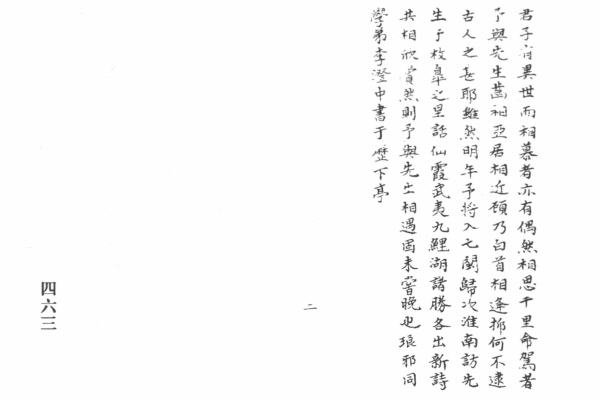 君子有異世而相慕者亦有偶然相思千里命駕者
予與先生齒相亞居相近顧乃白首相逢抑何不逮
古人之甚耶雖然明年予將入七閩歸次淮南訪先
生于枚皐之里話仙霞武夷九鯉湖諸勝各出新詩
共相欣賞然則予與先生相遇固未嘗晚也琅邪同
學弟李澄中書于歷下亭
二
四六三